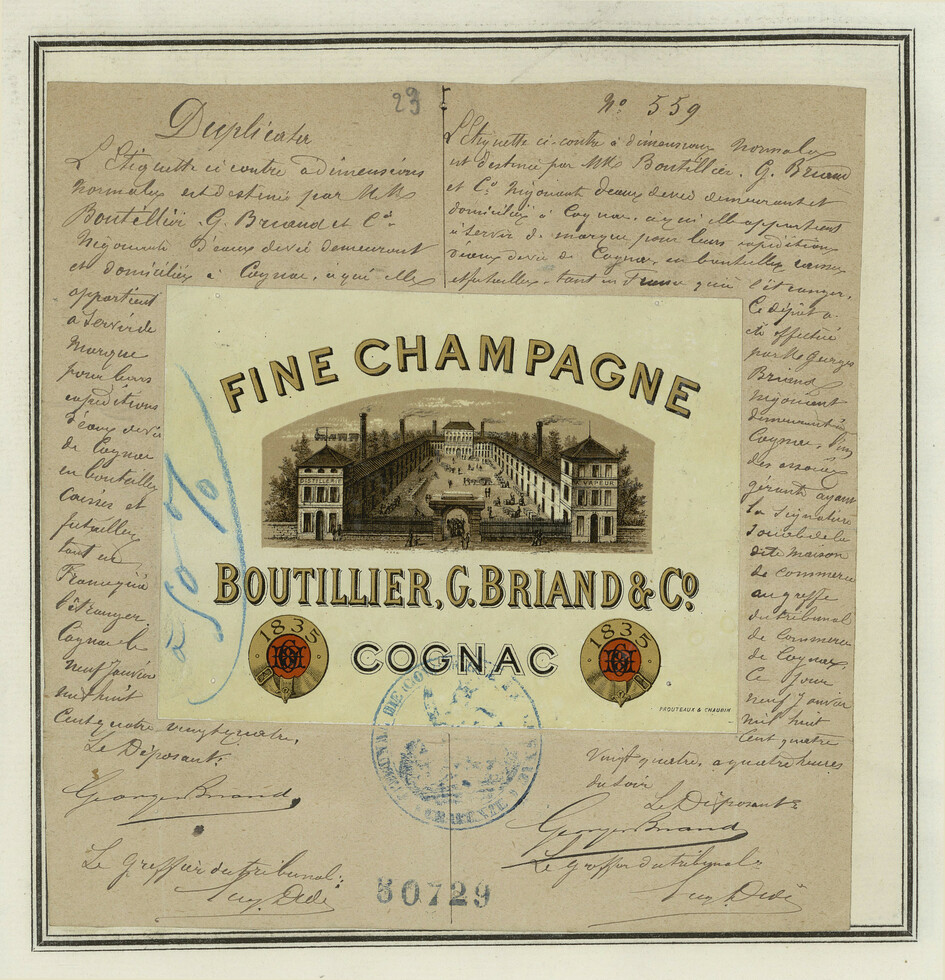 29
Duplicata
L'Étiquette ci contre a dimensions
normales est destinée par MM.
Boutillier G. Briand et Cie
Négociants d'eaux de vie demeurant
et domiciliés à Cognac, à qui elle
appartient
a servir de
marque
pour leurs
expéditions
d'eaux de vie
de Cognac
en bouteilles
Caisses et
futailles
tant en
France qu'à
l'étranger.
Cognac le
neuf Janvier
mil huit
Cent quatre vingt quatre.
Le Déposant:
Georges Briand
Le Greffier du tribunal:
Eug. Dedé
No 559
L'Étiquette ci-contre à dimensions normales
est destinée par MM. Boutillier, G. Briand
et Co Négociants d'eaux de vie demeurant et
domiciliés à Cognac, à qui elle appartient
à servir de marque pour leurs expéditions
d'eaux de vie de Cognac, en bouteilles, caisses
et futailles, tant en France qu'à l'étranger.
Ce dépôt a
été effectué
par Mr Georges
Briand
Négociant
demeurant à
Cognac, l'un
des associés
gérants ayant
la Signature
Sociale de la
dite maison
de commerce
au greffe
du tribunal
de Commerce
de Cognac
Ce jour
neuf Janvier
mil huit
Cent quatre
Vingt quatre, a quatre heures
du soir
Le Déposant:
Georges Briand
Le Greffier du tribunal:
Eug. Dedé
FINE CHAMPAGNE
DISTILLERIE
À VAPEUR
BOUTILLIER, G. BRIAND & Co
1835
1835
COGNAC
PROUTEAUX & CHAUDIN
TRIBUNAL DE COMMERCE
CHARENTE
50729